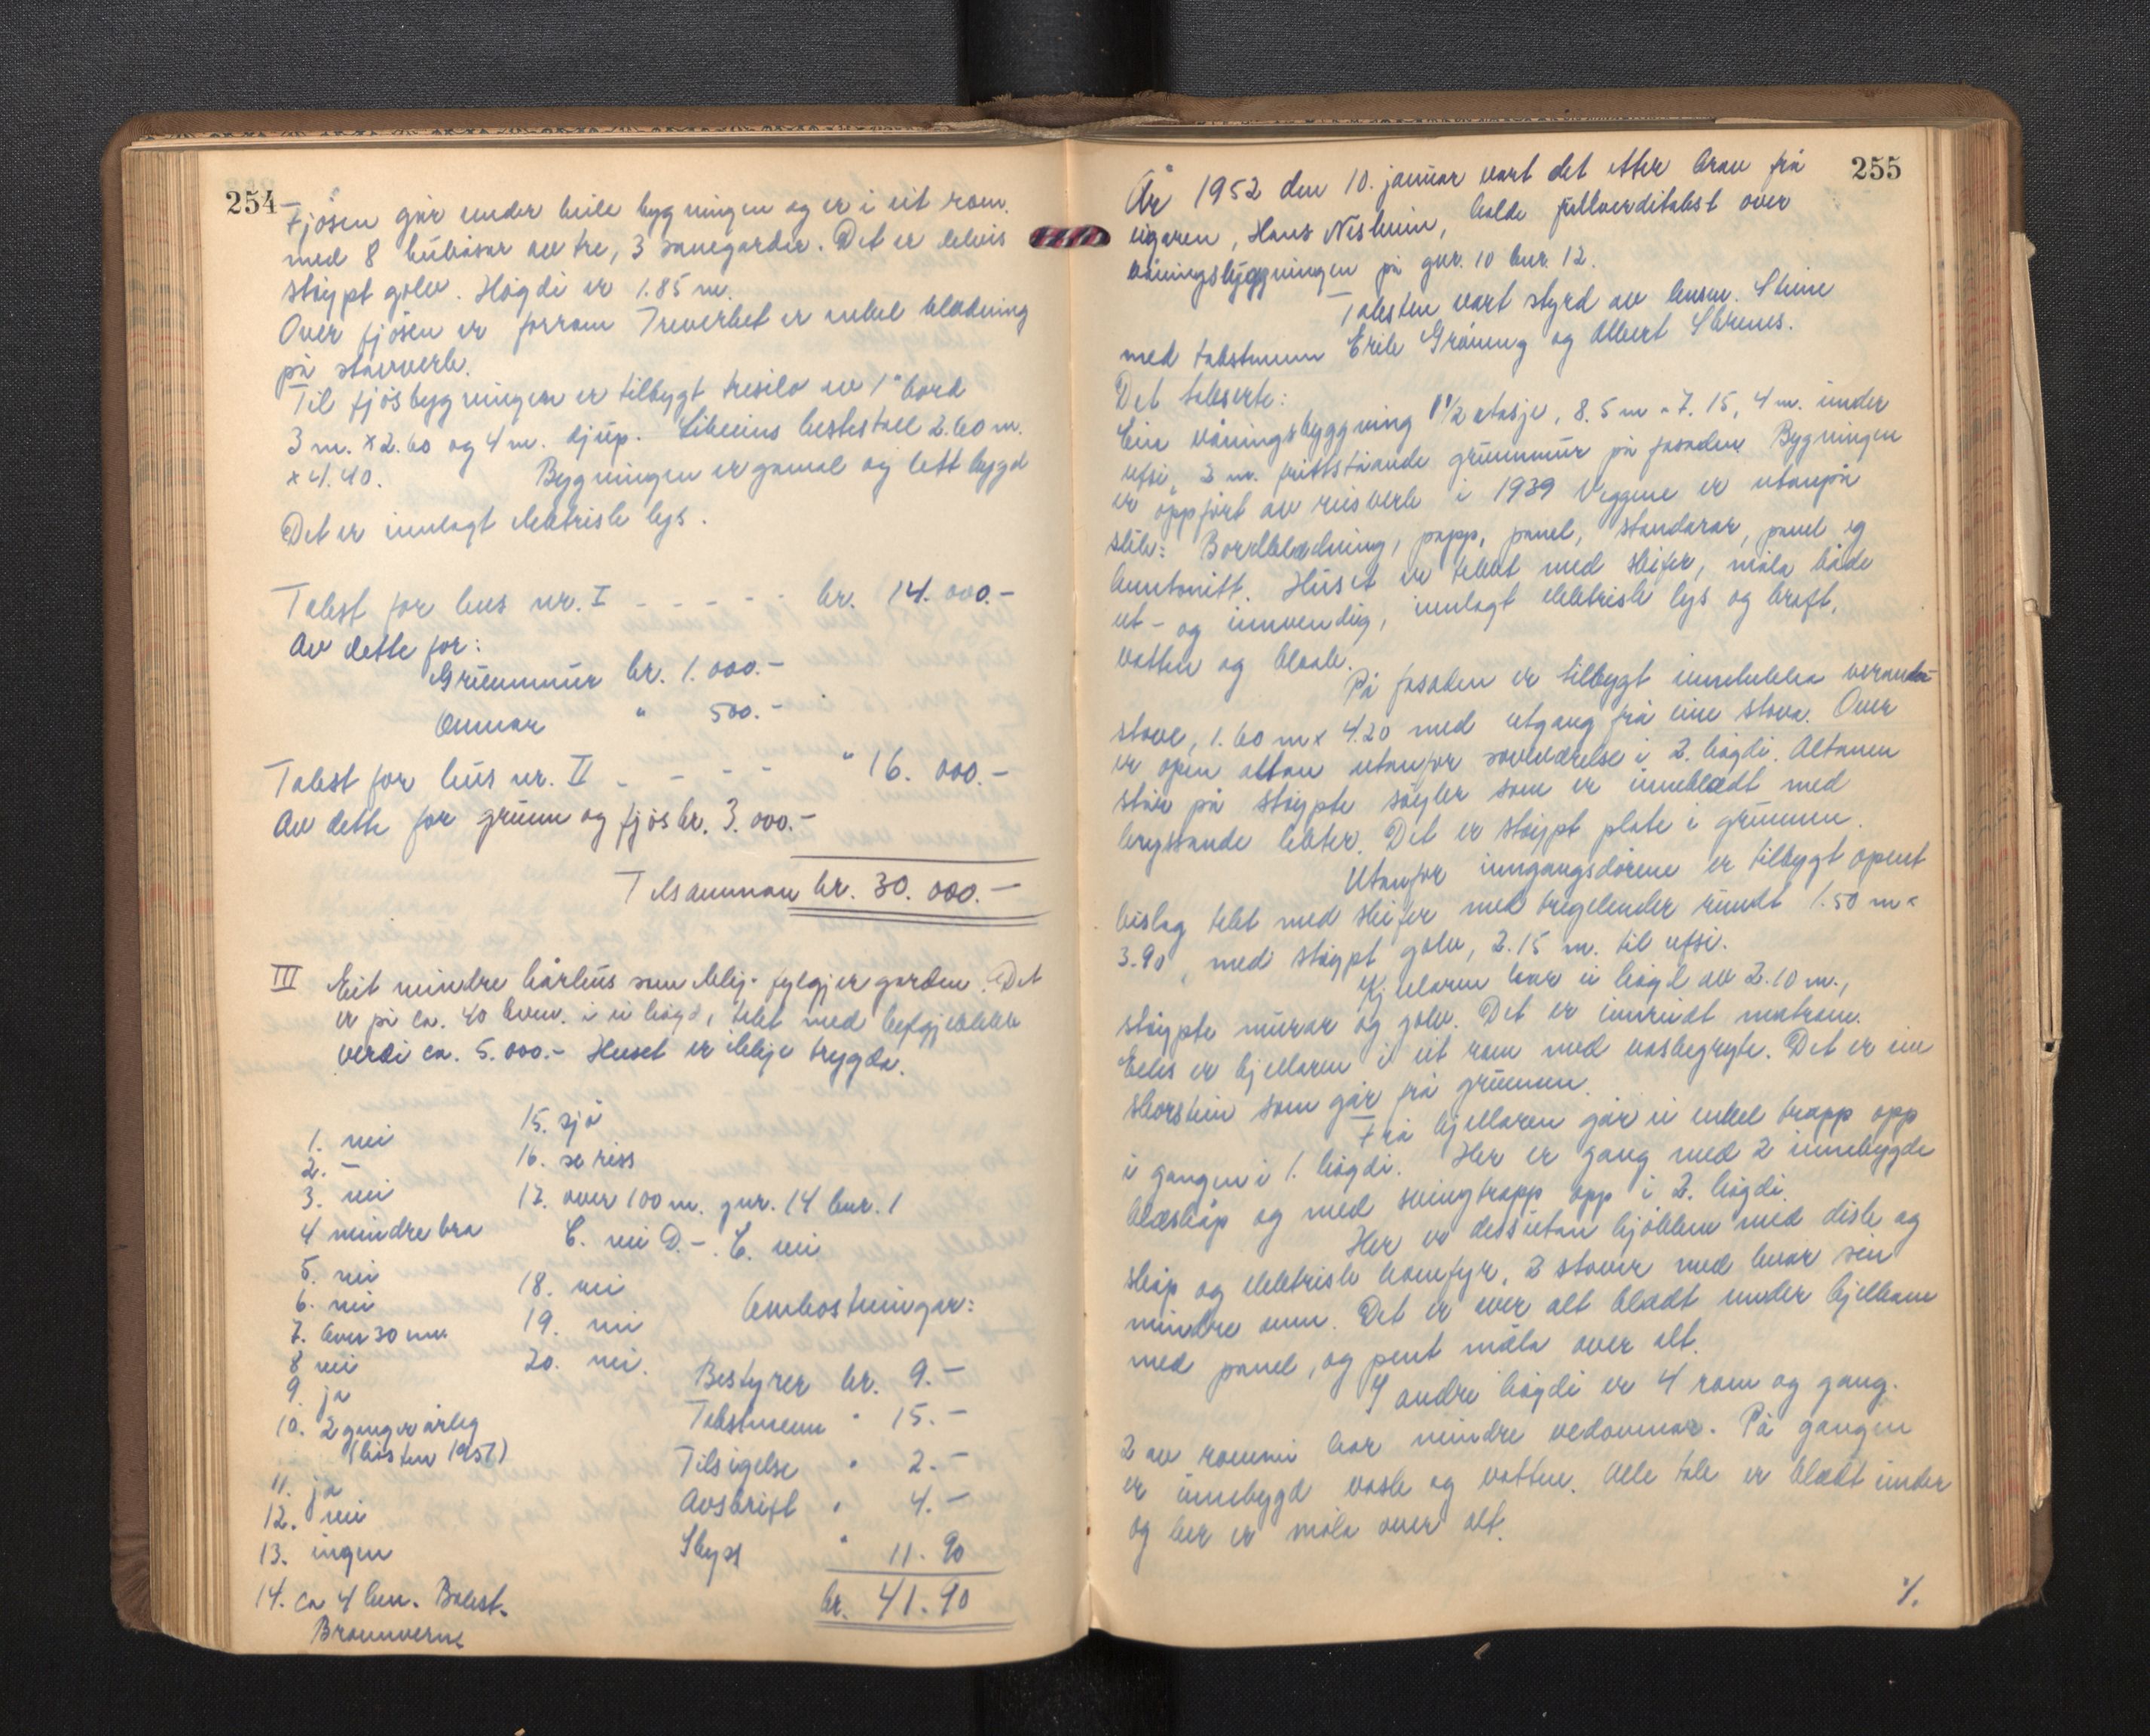 254
Fjøsen går under heile bygningen og er i eit rom.
med 8 kubåsar av tre, 3 sauegardar. Det er delvis
støypt golv. Høgdi er 1.85 m.
Over fjøsen er forrom Treverket er enkel klædning
på stavverk.
Til fjøsbygningen er tilbygt tresilo av 1" bord
3 m. x 2.60 og 4 m. djup. Likeeins hestestall 2.60 m.
x 4.40. Bygningen er gamal og lett bygd
Det er innlagt elektrisk lys.
Takst for hus nr. I - - - - - kr. 14.000.-
Av dette for:
Grunnmur kr. 1.000.-
Omnar " 500.-
Takst for hus nr. II - - - - " 16.000.-
Av dette for grunn og fjøs kr. 3.000.-
Tilsamman kr. 30.000.-
III Eit mindre kårhus som ikkj. fylgjer garden. Det
er på ca. 40 kvm. i ei høgd, tekt med
verdi ca. 5.000.- Huset er ikkje trygda.
1. nei
2. -
3. nei
4 mindre bra
5. nei
6. nei
7. over 30 min
8 nei
9. ja
10. 2 ganger årleg
(hausten 1951)
11. ja
12. nei
13. ingen
14. ca 4 km. Bolst.
Brannvern
15. sjå
16. se riss
17. over 100 m. gnr. 14 bnr. 1
C. nei D. -. E. nei
18. nei
19. nei
20. nei.
Omkostningar:
Bestyrer kr. 9.-
Takstmenn " 15.-
Tilsigelse " 2.-
Avskrift " 4.-
Skyss " 11.90
kr. 41.90
255
År 1952 den 10. januar vart det etter krav frå
eigaren, Hans Nesheim, halde fullverditakst over
våningsbyggningen på gnr. 10 bnr. 12.
Taksten vart styrd av lensm. Steine
med takstmenn Erik Grøning og Albert Skrenes.
Det takserte:
Ein våningsbyggning 1 1/2 etasje, 8.5 m x 7.15, 4 m. under
ufsi, 3 m. frittståande grunnmur på fasaden Bygningen
er oppført av reisverk i 1939 Veggene er utanpå
slik: Bordklædning, papp, panel, standarar, panel og
kvistonitt. Huset er tekt med skifer, måla både
ut- og innvendig, innlagt elektrisk lys og kraft,
vatten og kloakk.
På fasaden er tilbygt innelukka veranda
stove, 1.60 m x 4.20 med utgang frå eine stova. Over
er open altan utanfor soveværelse i 2. høgdi. Altanen
står på støypte søyler som er inneklædt med
kryssande lekter. Det er støypt plate i grunnen.
Utanfor inngangsdørene er tilbygt opent
bislag tekt med skifer med tregelender rundt 1.50 m x
3.90, med støypt golv, 2.15 m. til ufsi.
Kjellaren har ei høgd av 2.10 m.,
støypte murar og golv. Det er innreidt matrom.
Ellers er kjellaren i eit rom med vaskegryte. Det er ein
skorstein som går frå grunnen.
Frå kjellaren går ei enkel trapp opp
i gangen i 1. høgdi. Her er gang med 2 innebygde
klæskåp og med svingtrapp opp i 2. høgdi.
Her er dessutan kjøkken med disk og
skåp og elektrisk komfyr, 2 stover med kvar sin
mindre omn. Det er over alt klædt under bjelkane
med panel, og pent måla over alt.
I andre høgdi er 4 rom og gang.
2 av rommi har mindre vedomnar. På gangen
er innebygd vask og vatten. Alle tak er klædt under
og her er måla over alt.
./.